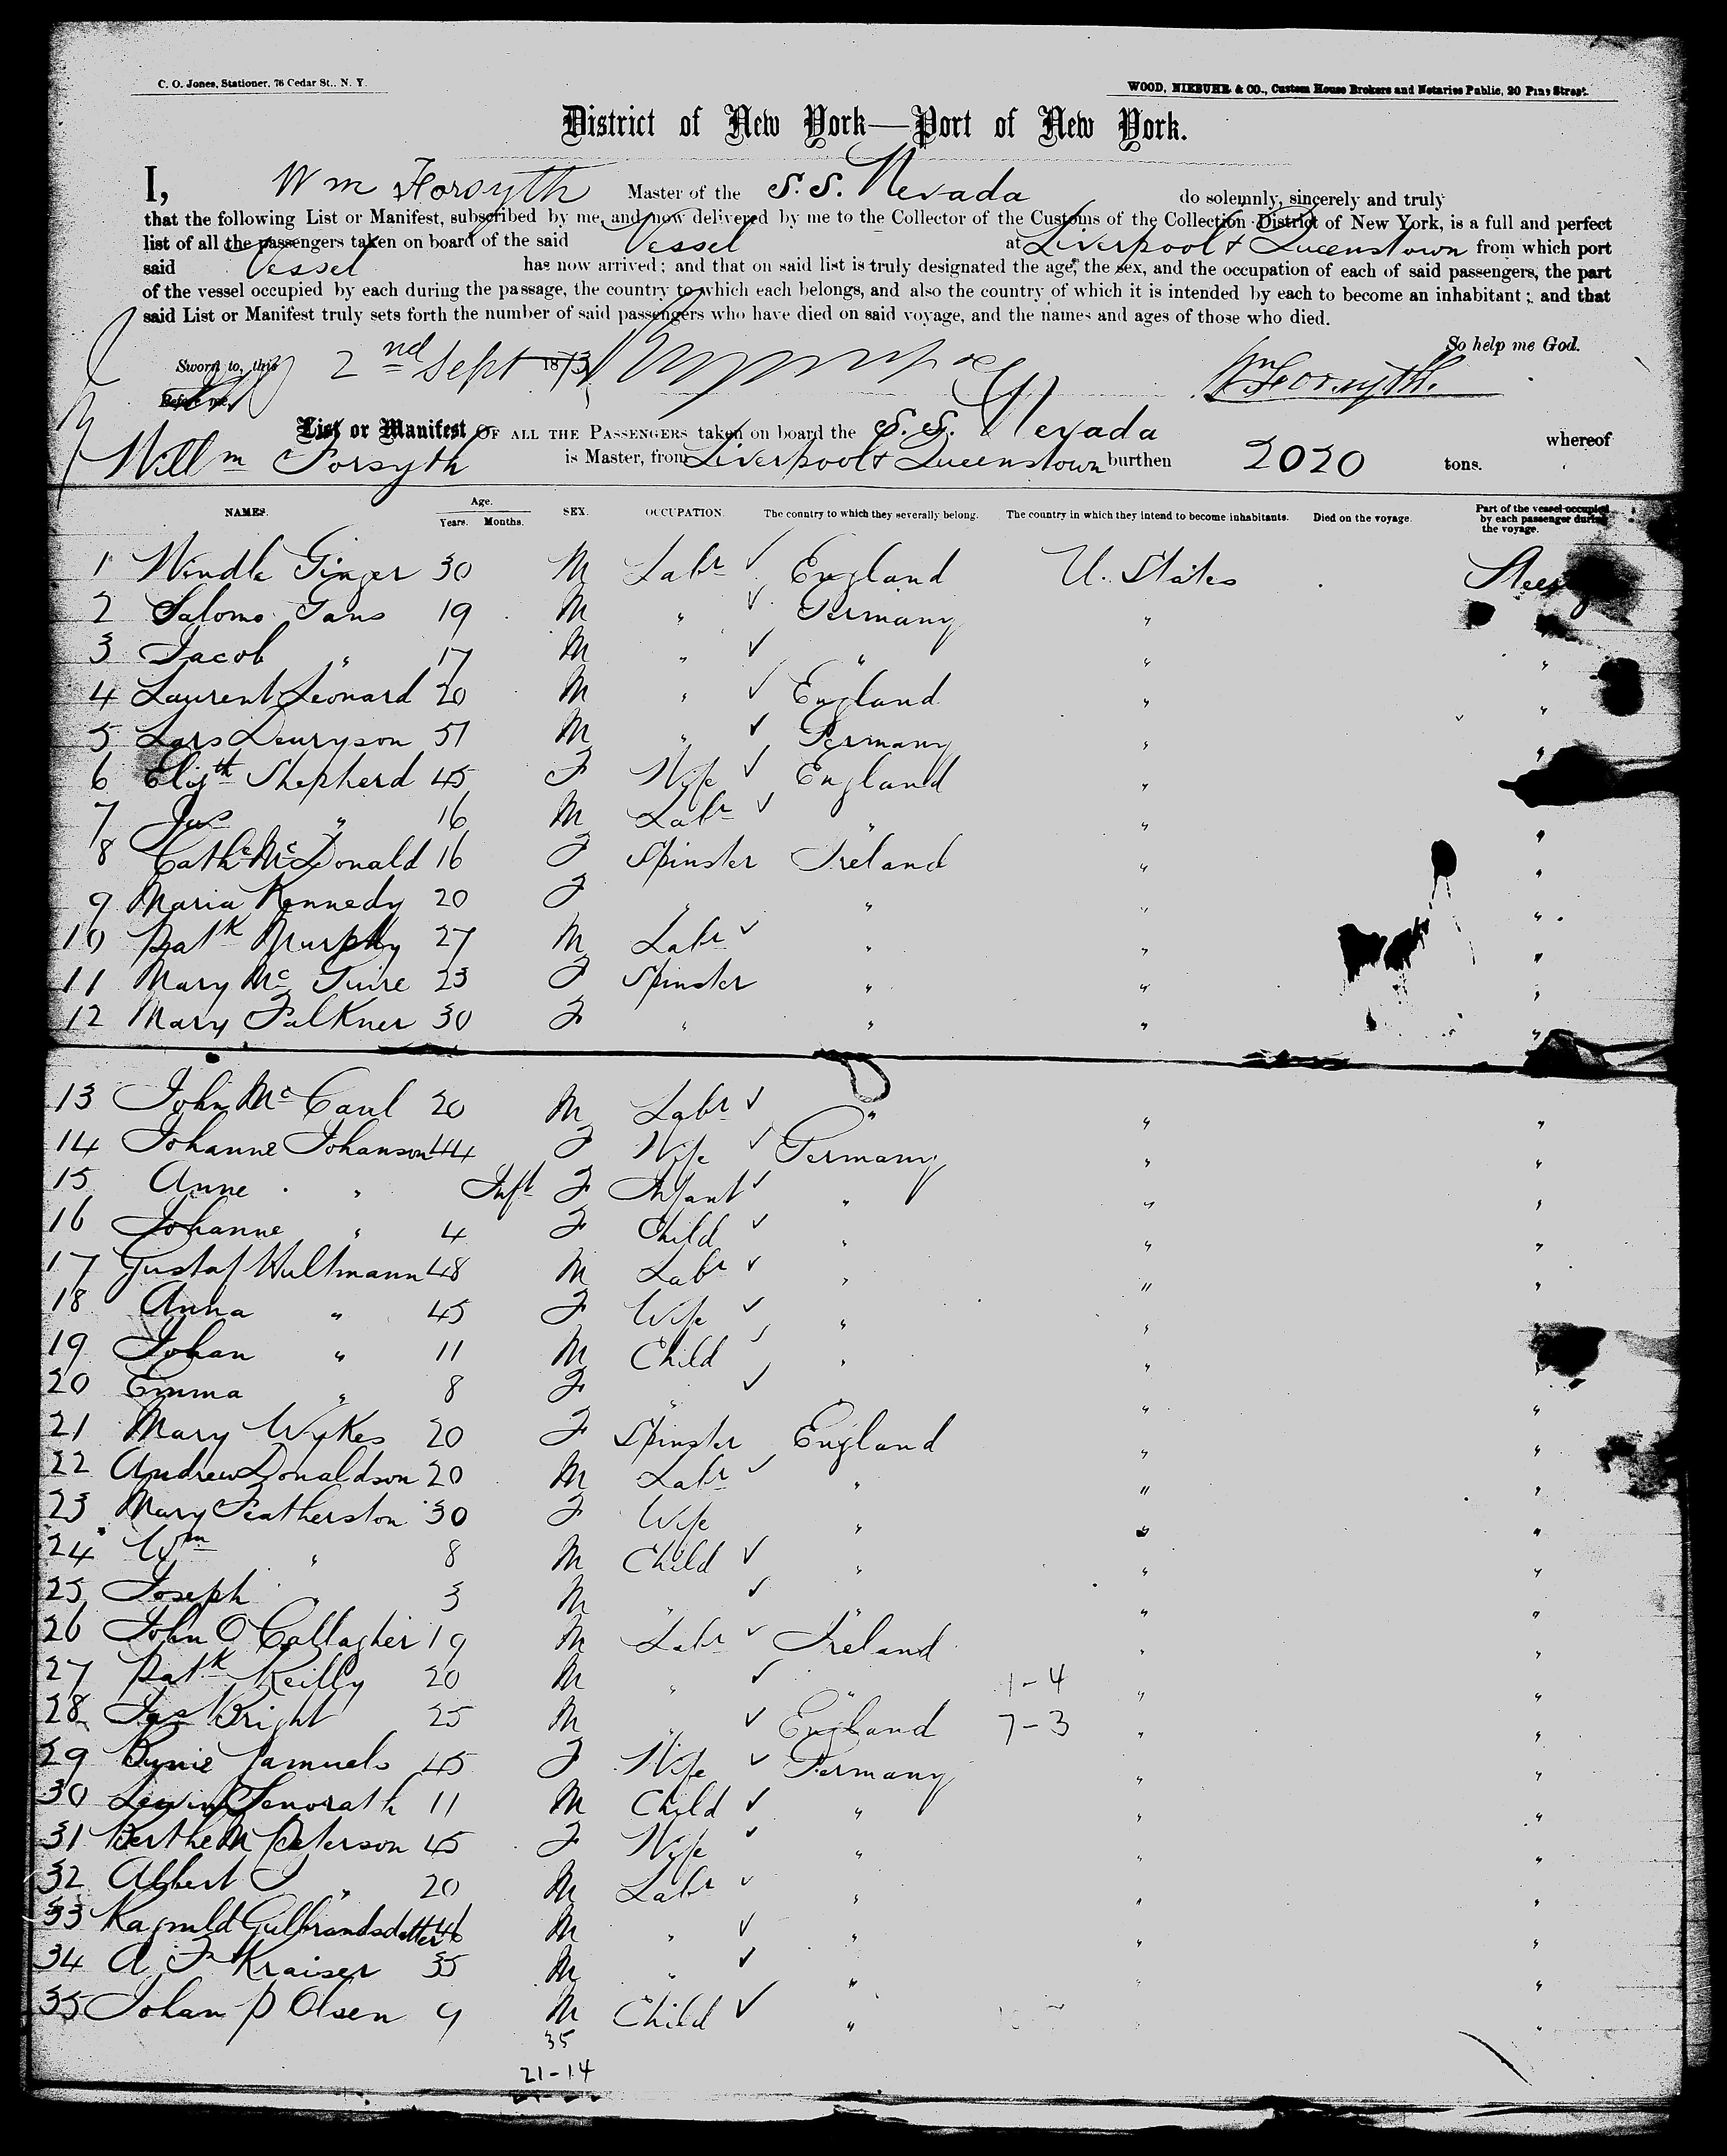 C. O. Jones, Stationer, 76 Cedar St., N. Y.
WOOD, NIEBUHR & CO., Custom House Brokers and Notaries Public, 20 Pine Street.
District of New York—Port of New York.
I, Wm Forsyth Master of the S.S. Nevada do solemnly, sincerely and truly
that the following List or Manifest, subscribed by me, and now delivered by me to the Collector of the Customs of the Collection District of New York, is a full and perfect
list of all the passengers taken on board of the said Vessel at Liverpool & Queenstown from which port
said Vessel has now arrived; and that on said list is truly designated the age, the sex, and the occupation of each of said passengers, the part
of the vessel occupied by each during the passage, the country to which each belongs, and also the country of which it is intended by each to become an inhabitant; and that
said List or Manifest truly sets forth the number of said passengers who have died on said voyage, and the names and ages of those who died.
So help me God.
Sworn to, this 2nd Sept 1873 Wm Forsyth.
Before me,
List or Manifest OF ALL THE PASSENGERS taken on board the S.S. Nevada whereof
Willm Forsyth is Master, from Liverpool & Queenstown burthen 2020 tons.
NAMES. Age. Years. Months. SEX. OCCUPATION. The country to which they severally belong. The country in which they intend to become inhabitants. Died on the voyage. Part of the vessel occupied by each passenger during the voyage.
1 Windle Ginger 30 M Labr ✓ England U. States
2 Salomo Gans 19 M " ✓ Germany " "
3 Jacob " 17 M " ✓ " " "
4 Laurent Leonard 20 M " ✓ England " "
5 Lars 51 M " ✓ Germany " "
6 Elizth Shepherd 45 F Wife ✓ England "
7 Jas " 16 M Labr ✓ " " "
8 Cathe McDonald 16 F Spinster Ireland " "
9 Maria Kennedy 20 F " " " "
10 Patk Murphy 27 M Labr ✓ " " "
11 Mary McGuire 23 F Spinster " " "
12 Mary Falkner 30 F " " " "
13 John McCaul 20 M Labr ✓ " " "
14 Johanne Johanson 44 F Wife ✓ Germany " "
15 Anne " Inft F Infant ✓ " " "
16 Johanne " 4 F Child ✓ " " "
17 Gustaf Hultmann 48 M Labr ✓ " " "
18 Anna " 45 F Wife ✓ " " "
19 Johan " 11 M Child ✓ " " "
20 Emma " 8 F " ✓ " " "
21 Mary Wykes 20 F Spinster England " "
22 Andrew Donaldson 20 M Labr ✓ " " "
23 Mary Featherston 30 F Wife " " "
24 Wm " 8 M Child ✓ " " "
25 Joseph " 3 M " ✓ " " "
26 John O Gallagher 19 M Labr ✓ Ireland " "
27 Patk Reilly 20 M " ✓ " 1-4 " "
28 Jas Bright 25 M " ✓ England 7-3 " "
29 Samuels 45 F Wife ✓ Germany " "
30 11 M Child ✓ " " "
31 Berthe M Peterson 45 F Wife ✓ " " "
32 Albert J " 20 M Labr ✓ " " "
33 Ragnild Gulbrandsdetter 46 M " ✓ " " "
34 A F Kraiser 35 M " ✓ " " "
35 Johan P Olsen 9 M Child ✓ " " "
35
21-14